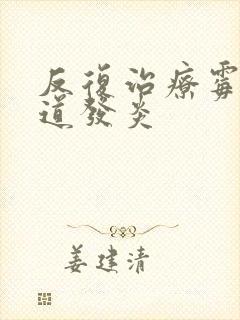 反復治療霉
道發炎
姜建清